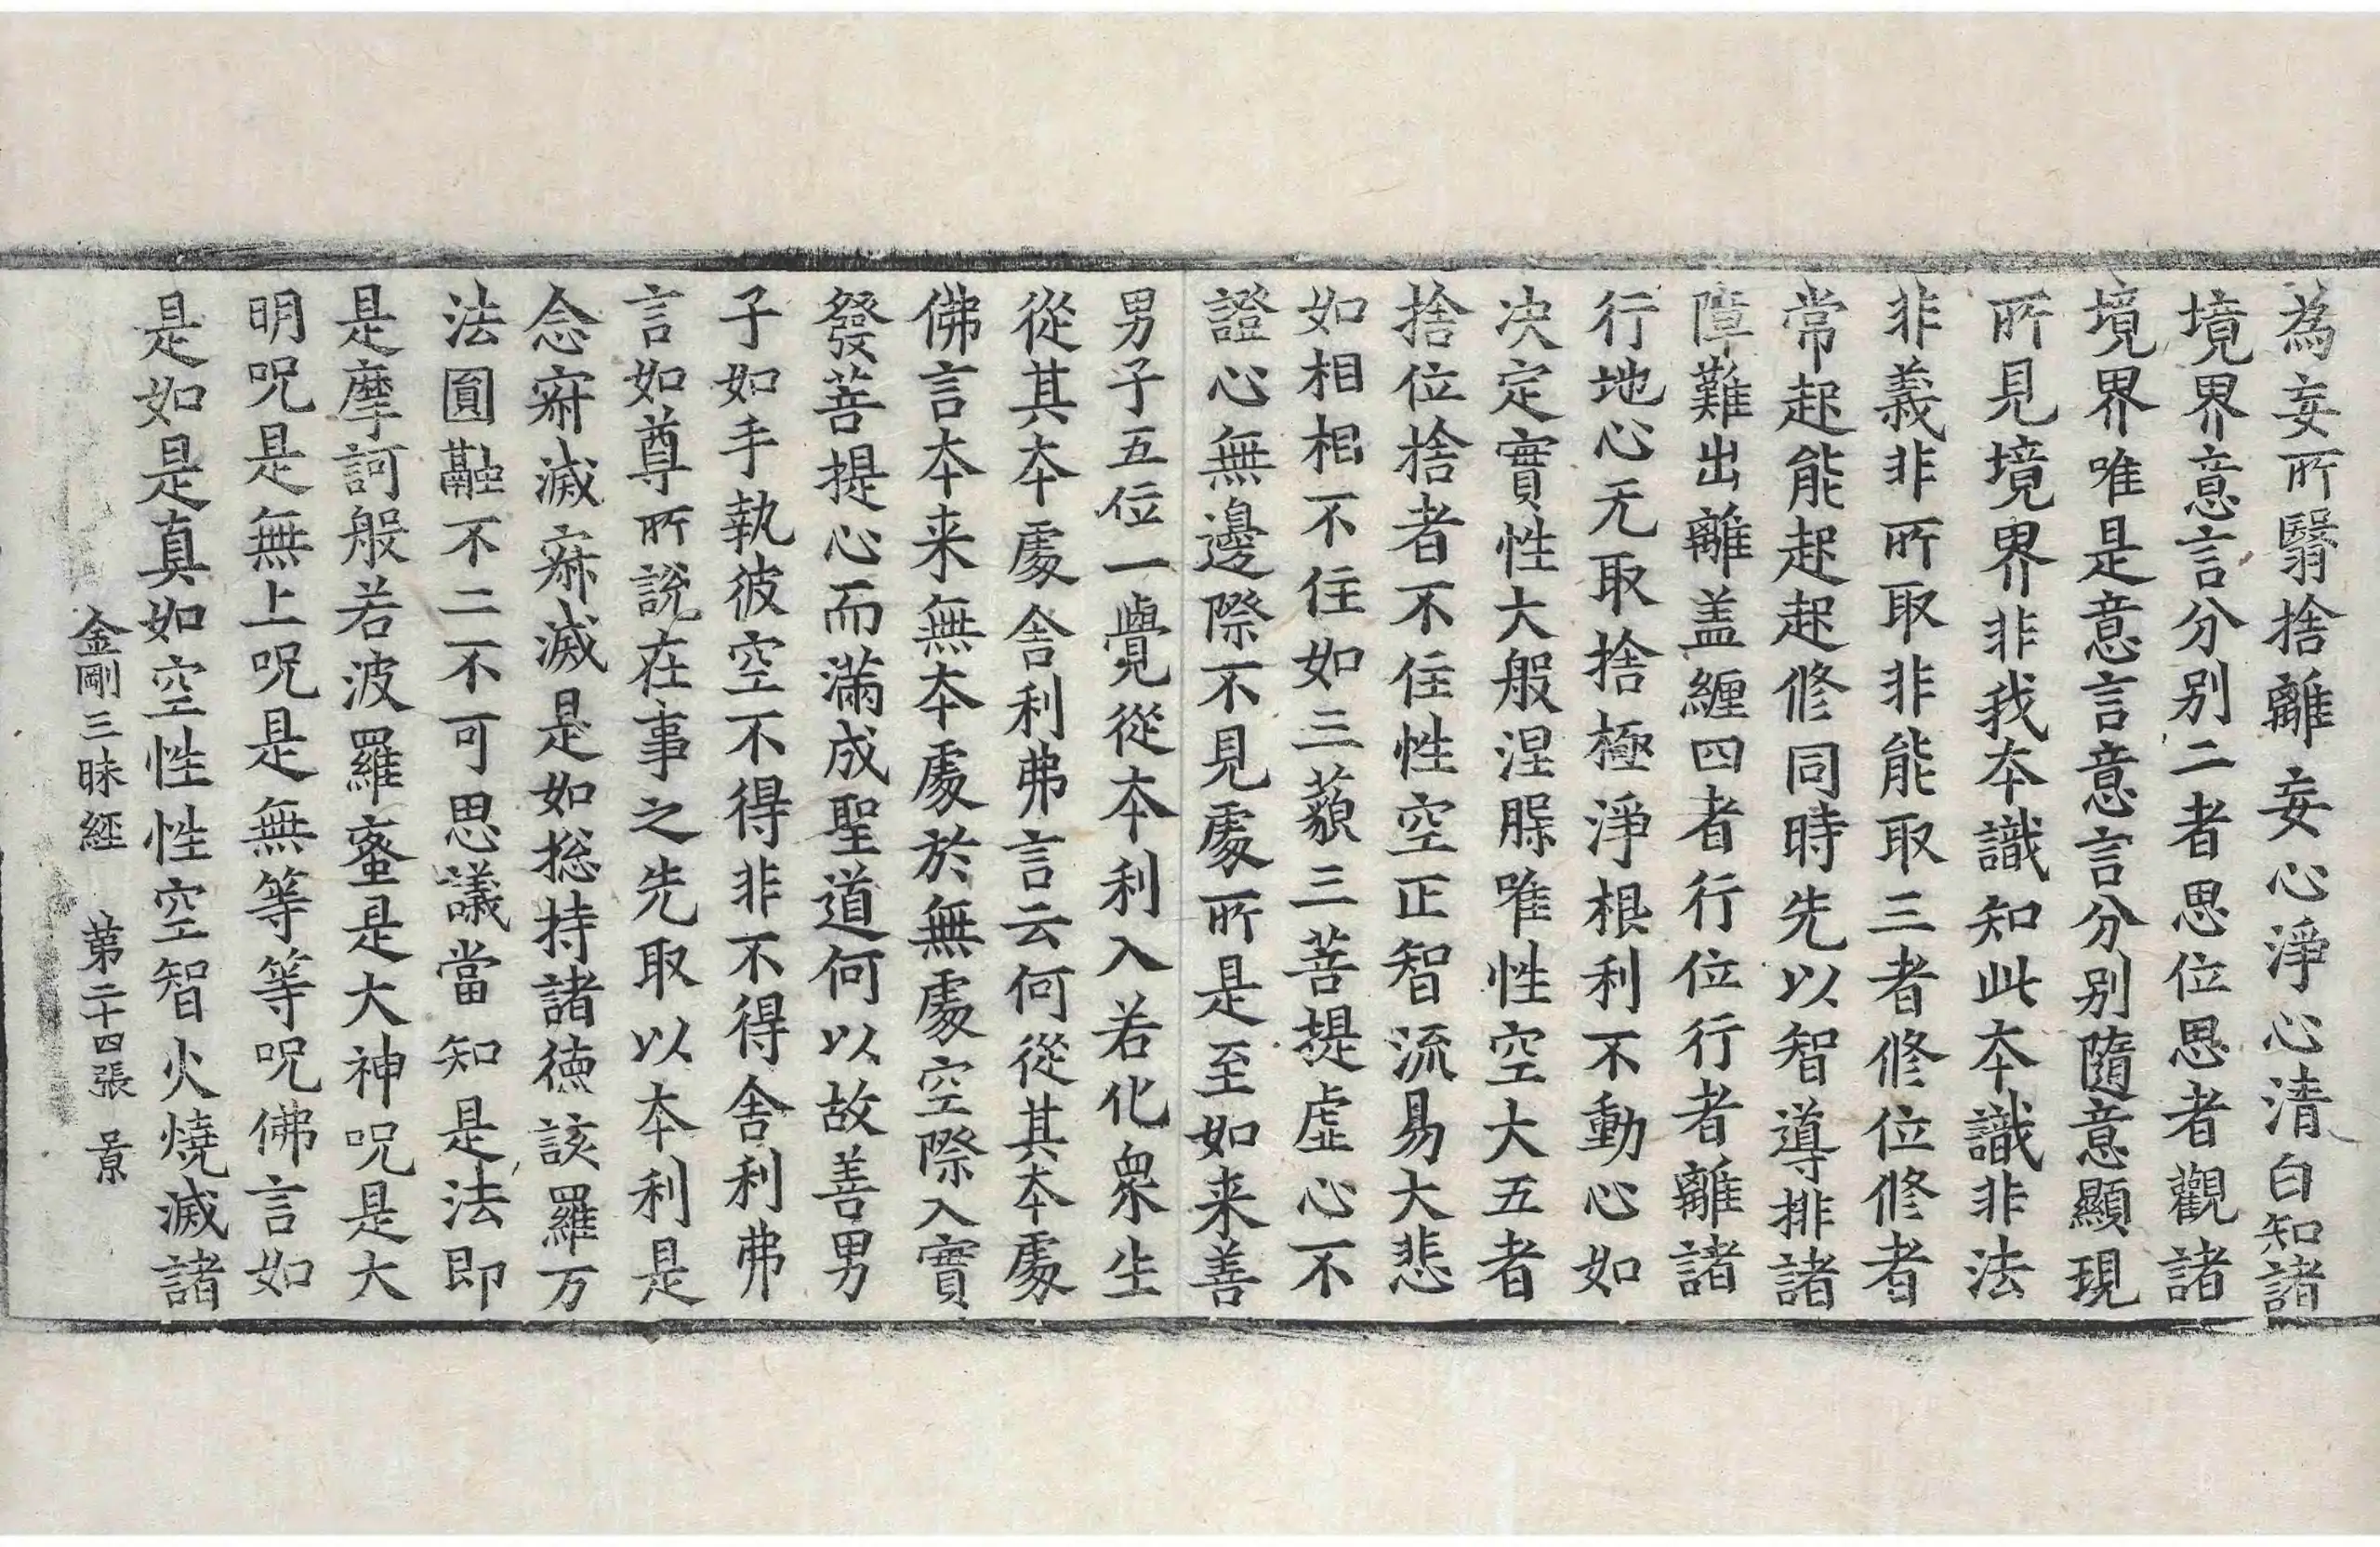 為妄所翳捨離妄心淨心清白知諸
境界意言分别二者思位思者觀諸
境界唯是意言意言分别隨意顯現
所見境界非我本識知此本識非法
非義非所取非能取三者修位修者
常起能起起修同時先以智導排諸
障難出離盖纏四者行位行者離諸
行地心无取捨極淨根利不動心如
决定實性大般涅槃唯性空大五者
捨位捨者不住性空正智流易大悲
如相相不住如三藐三菩提虛心不
證心無邊際不見處所是至如来善
男子五位一覺從本利入若化衆生
從其本處舍利弗言云何從其本處
佛言本来無本處於無處空際入實
發菩提心而滿成聖道何以故善男
子如手執彼空不得非不得舍利弗
言如尊所說在事之先取以本利是
念寂滅寂滅是如捴持諸德該羅万
法圓融不二不可思議當知是法即
是摩訶般若波羅蜜是大神呪是大
明呪是無上呪是無等等呪佛言如
是如是真如空性性空智火燒滅諸
金剛三昧經 第二十四張 景